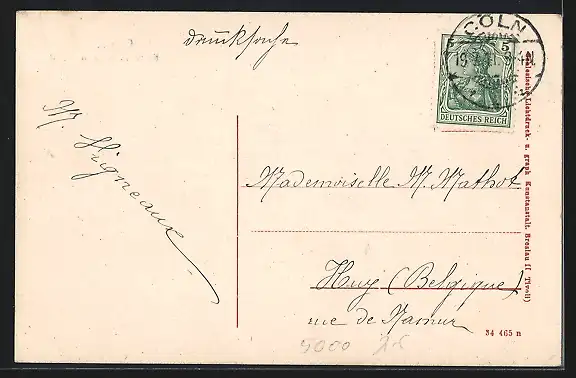 Drucksache
CÖLN
5
DEUTSCHES REICH
M. Higneaux
Mademoiselle M. Mathot
Huy (Belgique)
rue de Namur
Lichtdruck- u. graph Kunstanstalt. Breslau II (Tivoli)
34 465 n
4000